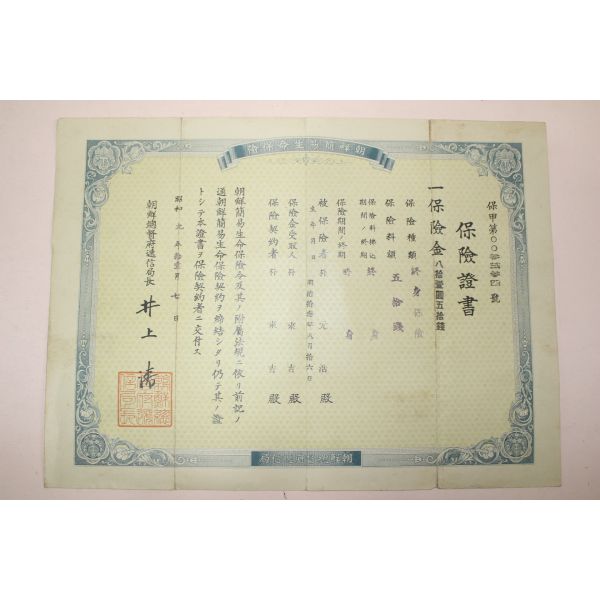 朝鮮簡易生命保險
保險證書
一保險金八拾壹圓五拾錢
保險種類終身保險
保險料額五拾錢
保險料拂込期間ノ終期終身
保險期間ノ終期終身
被保險者
殿
生年月日明治拾
年八月拾六日
保險金受取人
東吉殿
保險契約者
東吉殿
朝鮮簡易生命保險令及其ノ附屬法規ニ依リ前記ノ
通朝鮮簡易生命保險契約ヲ締結シタリ仍テ其ノ證
トシテ本證書ヲ保險契約者ニ交付ス
昭和九年拾壹月七日
朝鮮總督府遞信局長井上清
朝鮮總督府遞信局